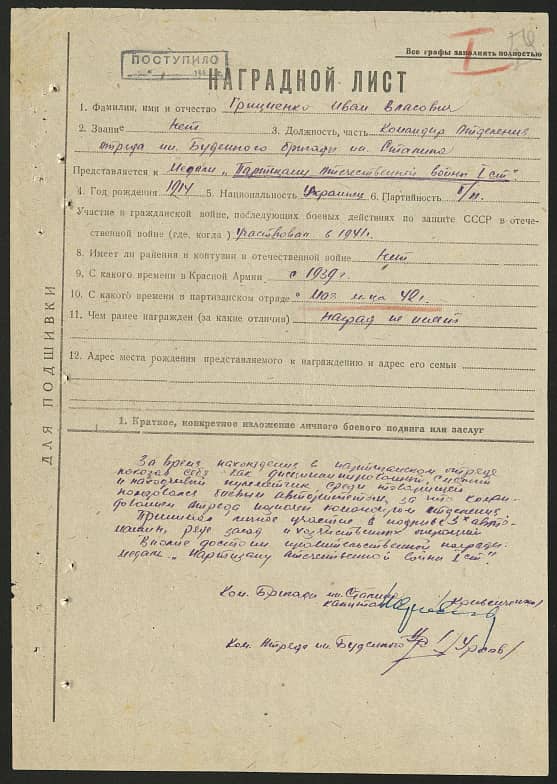 Все графы заполнять полностью
I
ПОСТУПИЛО
НАГРАДНОЙ ЛИСТ
1. Фамилия, имя и отчество Гриценко Иван Власович
2. Звание нет 3. Должность, часть Командир отделения
отряда им. Буденного бригады им. Сталина
Представляется к Медали „Партизану отечественной войны I ст"
4. Год рождения 1914 5. Национальность Украинец 6. Партийность б/п
Участие в гражданской войне, последующих боевых действиях по защите СССР в отече-
ственной войне (где. когда) участвовал в 1941г.
8. Имеет ли райения и контузии в отечественной войне нет
9. С какого времени в Красной Армии с 1939г.
10. С какого времени в партизанском отряде с мая м-ца 42г.
11. Чем ранее награжден (за какие отличия) наград не имеет
12. Адрес места рождения представляемого к награждению и адрес его семьи
ДЛЯ ПОДШИВКИ
1. Краткое, конкретное изложение личного боевого подвига или заслуг
За время нахождение в партизанском отряде
показав себя как дисциплинированный смелый
и находчивый пулеметчик среди товарищей
пользовался боевым авторитетом, за что коман-
дованием отряда назначен командиром отделения
Принимал личное участие в подрыве 3х авто-
машин, ряде засад и хозяйственных операций
Вполне достоин правительственной награды
медали „Партизану отечественной войны I ст".
Ком. Бригады им. Сталина
капитан
Ком. Отряда им. Буденного